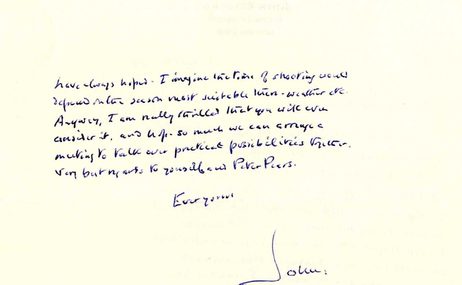 have always hoped. I imagine the time of shooting would
depend on the season most suitable there - weather etc.
Anyway, I am really thrilled that you will even
consider it, and hope so much we can arrange a
meeting to talk over practical possibilities together.
Very best regards to yourself and Peter Pears.
Ever yours
John.